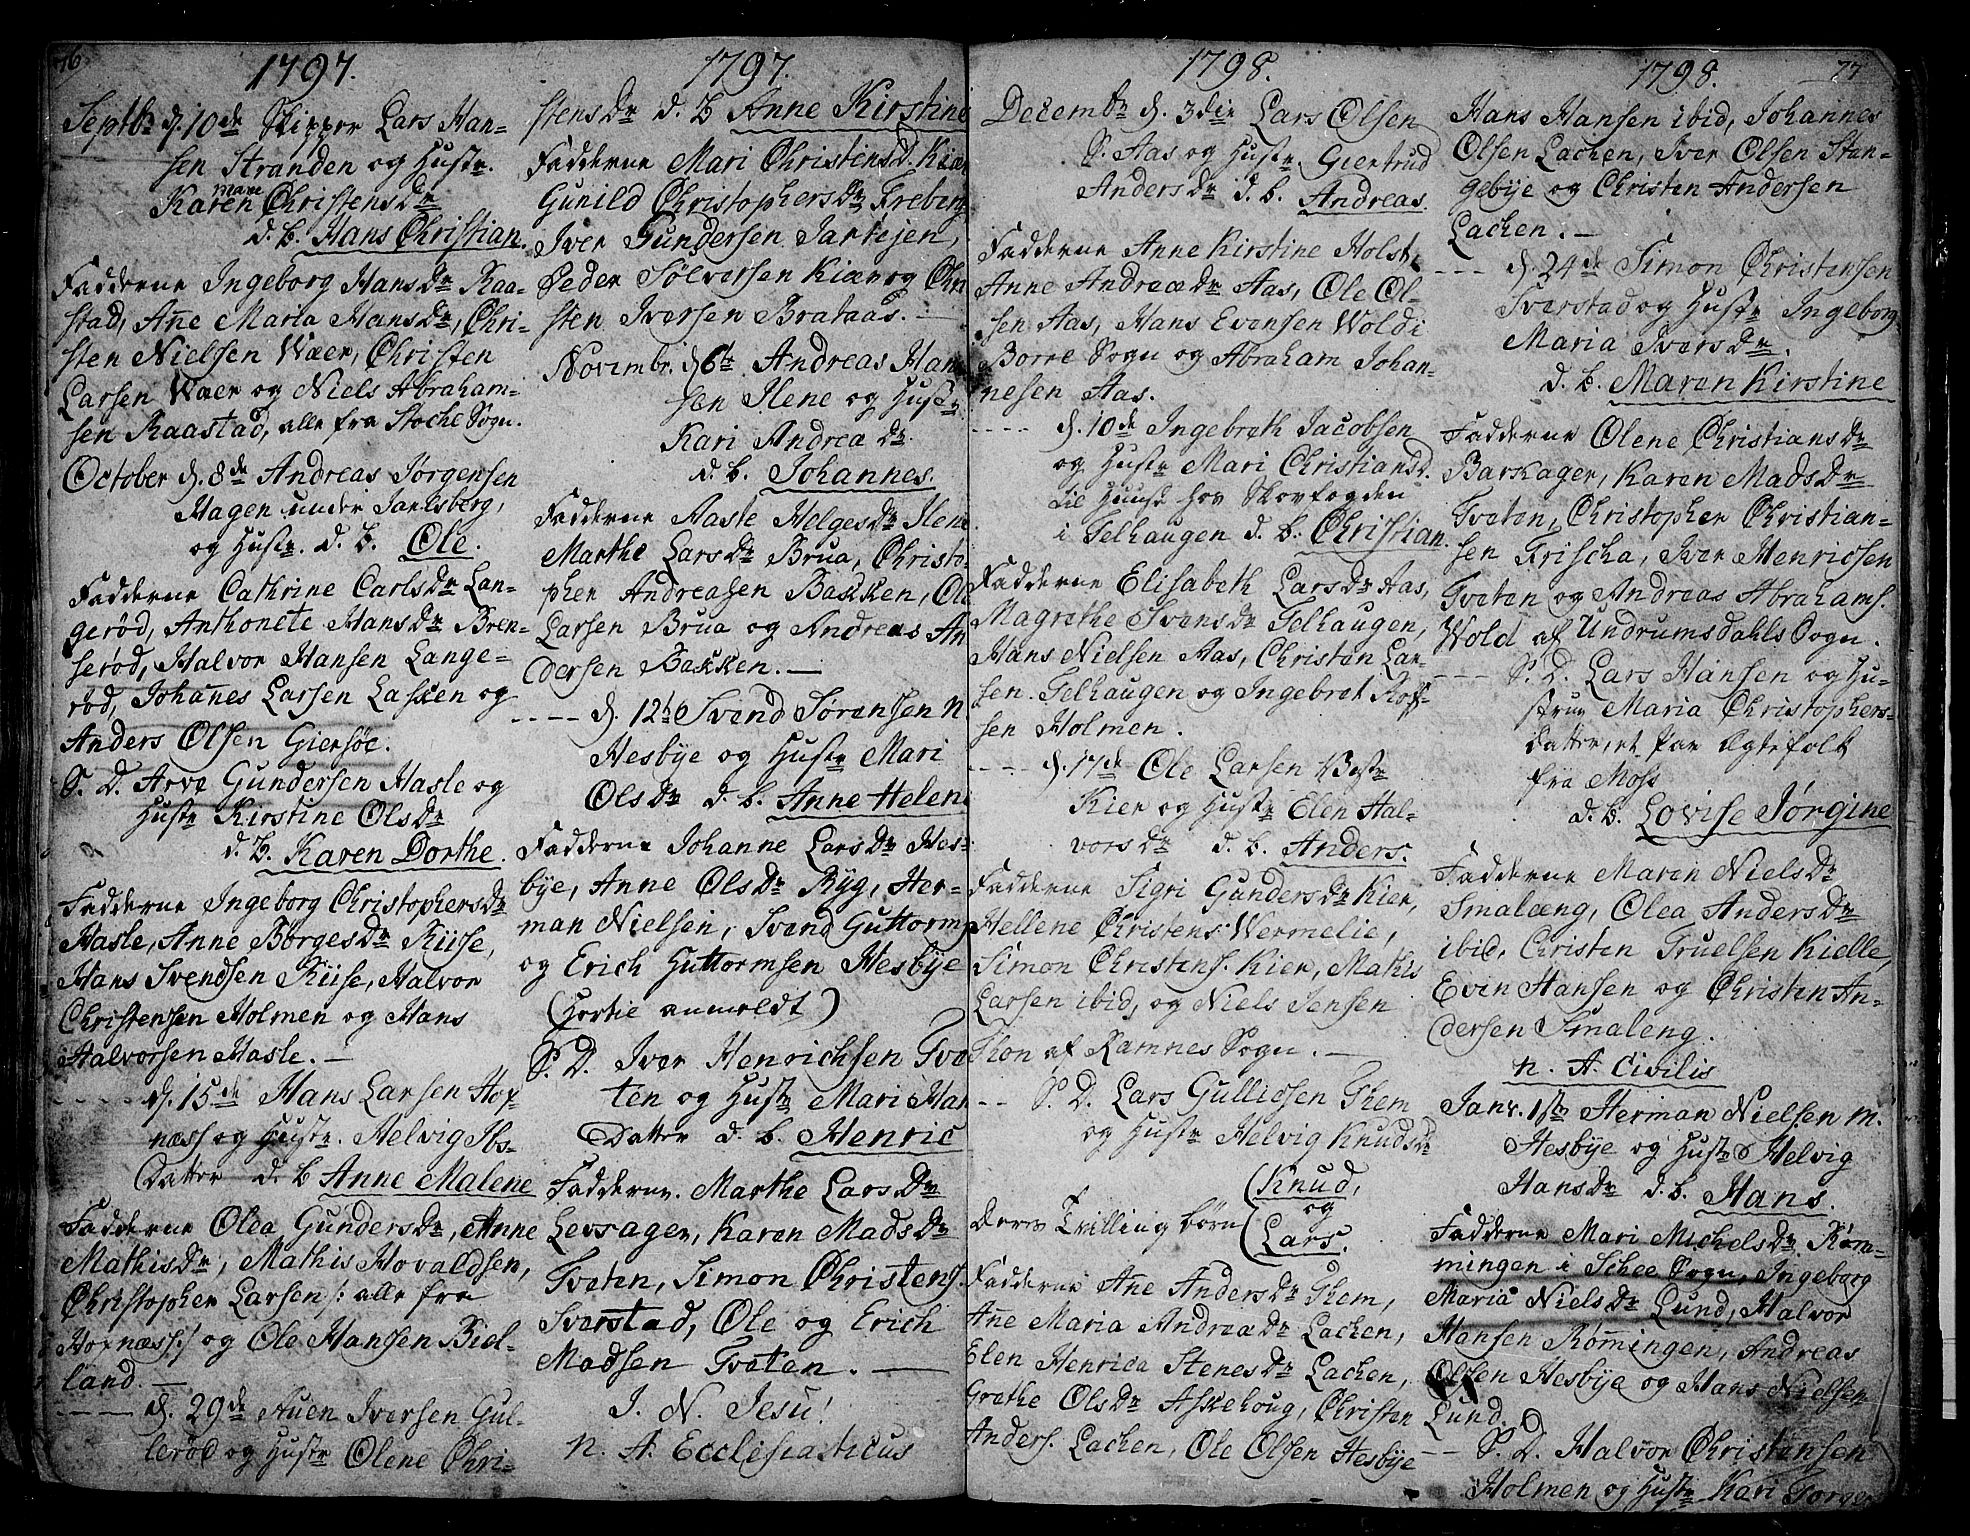 76
1797.
Septbr d. 10de Skipper Lars Han-
sen Stranden og Hustr.
Karen Mare Christensdr
d. b. Hans Christian.
Fadderne Ingeborg Hansdr Raa-
stad, Ane Maria Hansdr, Chri-
sten Nielsen Waer, Christen
Larsen Waer og Niels Abraham-
sen Raastad, alle fra Stoche Sogn.
October d. 8de Andreas Jørgensen
Hagen under Jarlsberg,
og Hustr. d. b. Ole.
Fadderne Cathrine Carlsdr Lan-
gerød, Anthonete Hansdr Bren-
serød, Halvor Hansen Lange-
rød, Johanes Larsen Lasken og
Anders Olsen Giersøe.
S. D. Arve Gundersen Hasle og
Hustr Kirstine Olsdr
d. b. Karen Dorthe.
Fadderne Ingeborg Christophersdr
Hasle, Anne Børgesdr Kiise,
Hans Svendsen Kiise, Halvor
Christensen Holmen og Hans
Halvorsen Hasle. —
d. 15de Hans Larsen Hof-
næss og Hustr. Helvig Ibs-
Datter d. b Anne Malene
Fadderne Olea Gundersdr, Anne
Mathisdr, Mathis Hovaldsen,
Christopher Larsen /: alle fra
Hofnæss :/ og Ole Hansen Biel-
land. —
---- d. 29de Auen Iversen Gul-
lerød og Hustr Olene Chri-
1797.
stensdr d. b Anne Kirstine
Fadderne Mari Christensd. Kiær
Gunild Christophersdr Freberg
Iver Gundersen Jarteien,
Peder Sølversen Kiær og Chri
sten Iversen Brataas. —
Novembr. d 6te Andreas Han
sen Ilene og Hustr
Kari Andreadr.
d. b. Johannes.
Fadderne Aaste Helgesdr Ilene
Marthe Larsdr Brua, Christo-
pher Andreasen Bakken, Ole
Larsen Brua og Andreas An
dersen Bakken. —
---- d. 12te Svend Sørensen N.
Hesbye og Hustr Mari
Olsdr d. b. Anne Helene
Fadderne Johanne Larsdr Hes-
bye, Anne Olsdr Ryg, Her-
man Nielsen, Svend Guttorms
og Erich Huttormsen Hesbye
(Hortie anmeldt)
S. D. Iver Henrichsen Tve
ten og Hustr Mari Han
Datter d. b. Henric
Fadderne. Marthe Larsdr
Levsager, Karen Madsdr
Tveten, Simon Christens.
Sverstad, Ole og Erich
Madsen Tveten. —
I. N. Jesu!
N. A. Ecclesiasticus
1798.
Decembr d. 3die Lars Olsen
S. Aas og Hustr. Giertrud
Andersdr d. b. Andreas.
Fadderne Anne Kirstine Holst,
Anne Andreædr Aas, Ole Ol-
sen Aas, Hans Evensen Wold i
Borre Sogn og Abraham Johan-
nesen Aas.
---- d. 10de Ingebreth Jacobsen
og Hustr Mari Christiansd.
til Huuse hos Skovfogden
i Telhaugen d. b. Christian.
Fadderne Elisabeth Larsdr Aas,
Magrethe Svensdr Telhaugen,
Hans Nielsen Aas, Christen Lar-
sen Telhaugen og Ingebret Roff-
sen Holmen.
---- d. 17de Ole Larsen Vestr
Kier og Hustr Elen Hal-
vorsdr d. b. Anders.
Fadderne Sigri Gundersdr Kier,
Hellene Christens. Wermelie,
Simon Christens. Kier, Mathis
Larsen ibid, og Niels Jensen
Thon af Ramnes Sogn. —
-- S. D. Lars Gullicsen Them
og Hustr Helvig Knudsdr
deres Tvilling børn (Knud,
og
Lars.
Fadderne Ane Andersdr Them,
Ane Maria Andreadr Lachen,
Elen Henrica Stenesdr Lachen,
Grethe Olsdr Askehoug, Christen
Anders. Lachen, Ole Olsen Hesbye
1798. 77
Hans Hansen ibid, Johannes
Olsen Lachen, Iver Olsen Stan-
gebye og Christen Andersen
Lachen. —
---- d. 24de Simon Christensen
Sverstad og Hustr Ingeborg
Maria Iversdr.
d. b. Maren Kirstine
Fadderne Olene Christiansdr
Barkager, Karen Madsdr
Tveten, Christopher Christian-
sen Frischa, Iver Henricsen
Tveten og Andreas Abrahams.
Wold af Undrumsdahls Sogn.
---- S. D. Lars Hansen og Hu-
strue Maria Christophers-
datter, et Par Ægtefolk
fra Moss
d. b. Lovise Jørgine
Fadderne Maren Nielsdr
Smalæng, Olea Andersdr
ibid, Christen Truelsen Kielle,
Even Hansen og Christen An-
dersen Smaleng.
N. A. Civilis
Janr. 1ste Herman Nielsen M.
Hesbye og Hustr Helvig
Hansdr d. b. Hans.
Fadderne Mari Michelsdr Røm-
mingen i Schee Sogn, Ingeborg
Maria Nielsdr Lund, Halvor
Hansen Rømingen, Andreas
Olsen Hesbye og Hans Nielsen
Lund.
-- S. D. Halvor Christensen
Holmen og Hustr Kari Torger